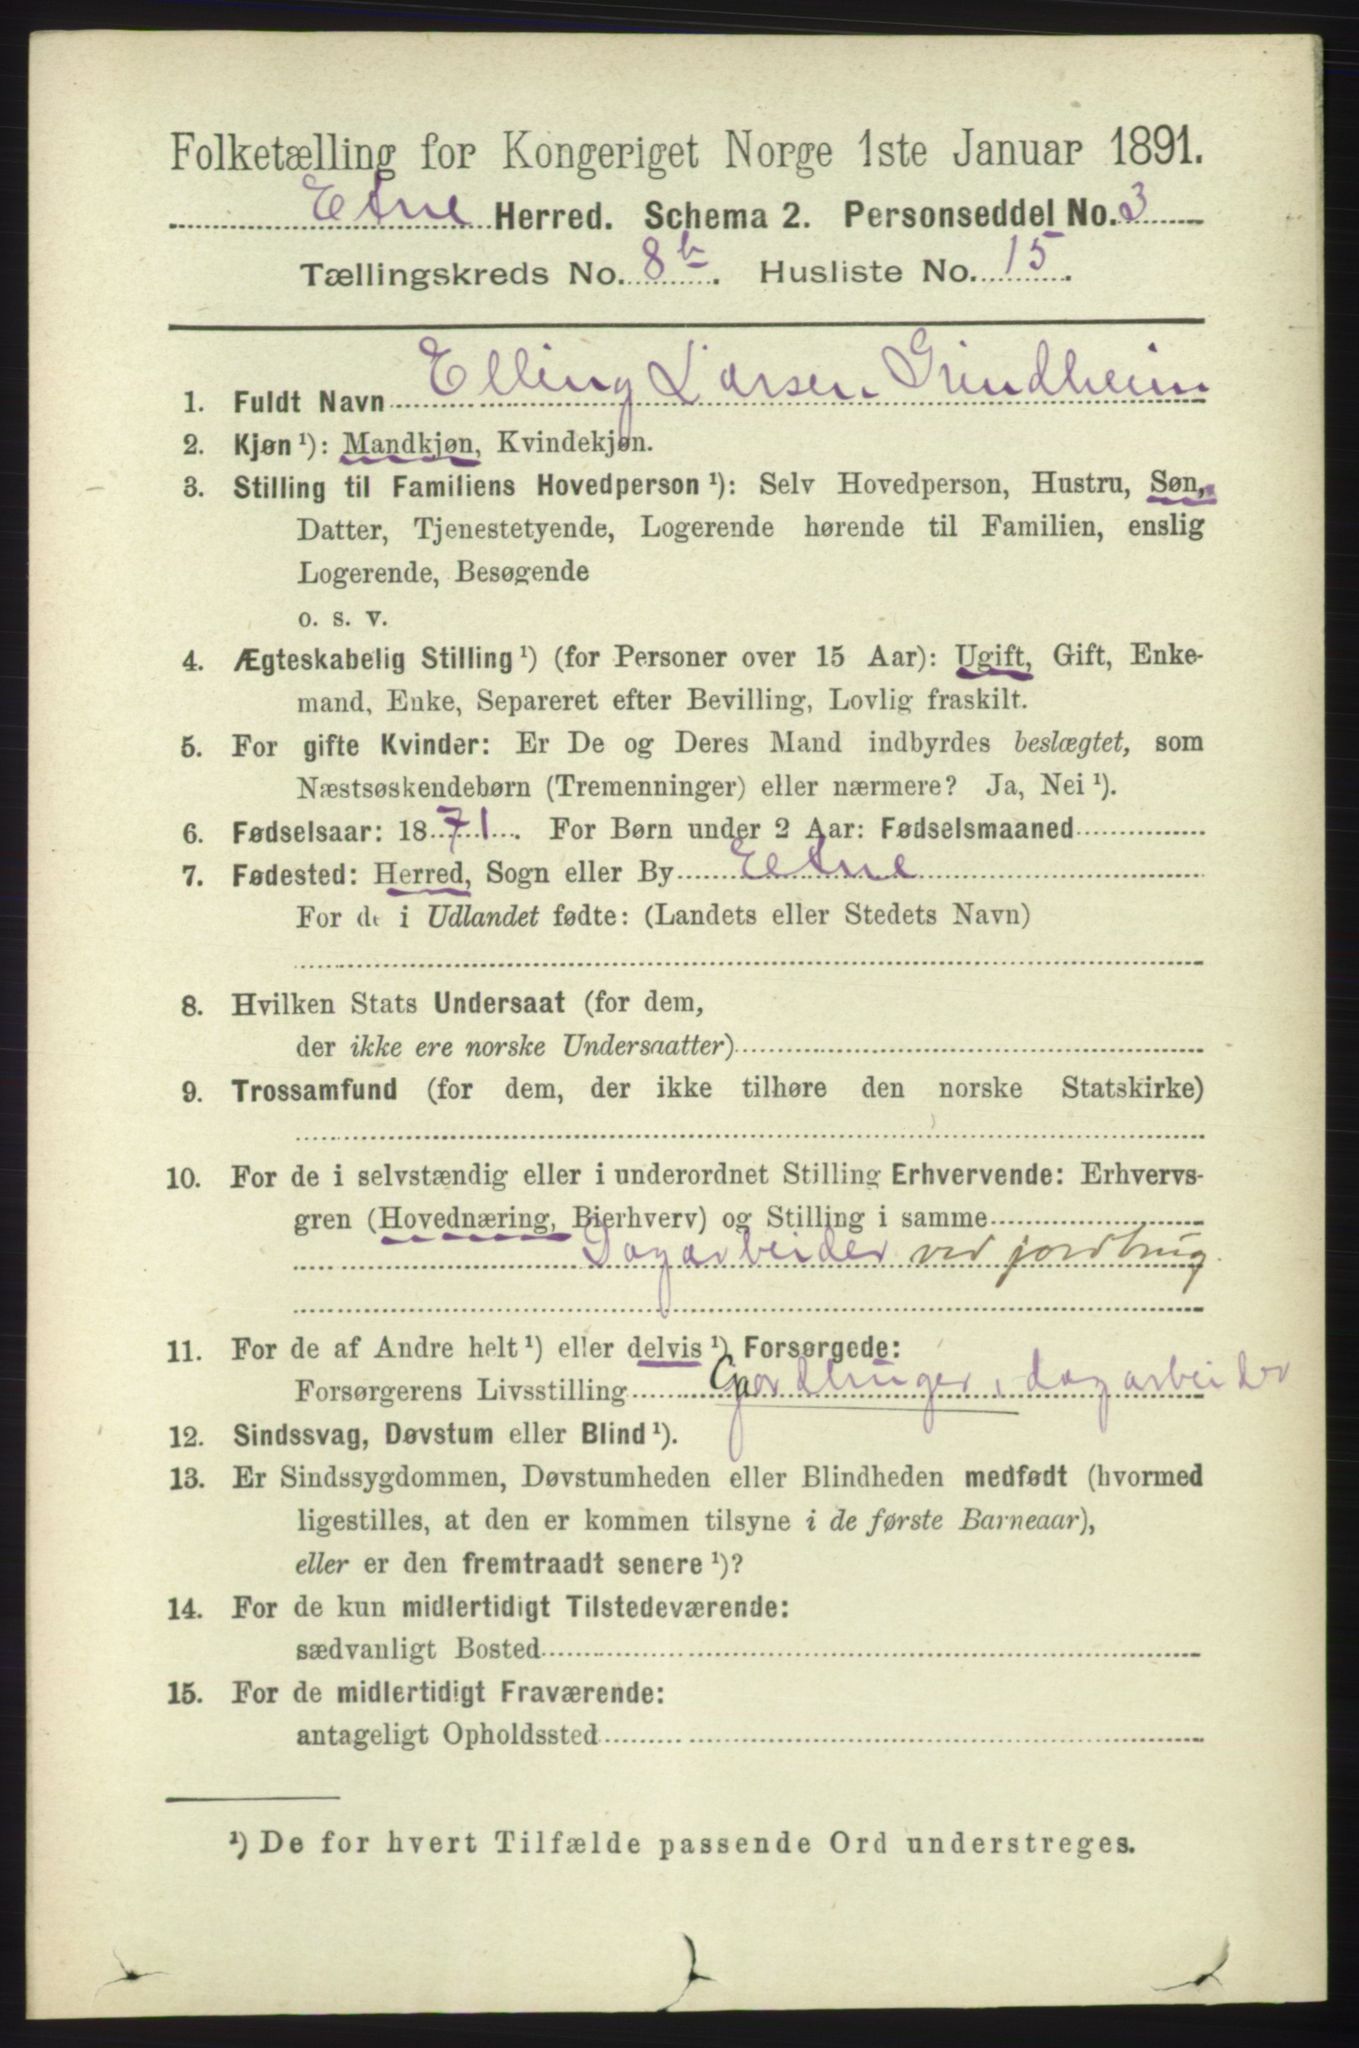 Folketælling for Kongeriget Norge 1ste Januar 1891.
Etne Herred. Schema 2. Personseddel No. 3
Tællingskreds No. 8b. Husliste No. 15.
1. Fuldt Navn Elling Larsen Grindheim
2. Kjøn ¹): Mandkjøn, Kvindekjøn.
3. Stilling til Familiens Hovedperson ¹): Selv Hovedperson, Hustru, Søn,
Datter, Tjenestetyende, Logerende hørende til Familien, enslig
Logerende, Besøgende
o. s. v.
4. Ægteskabelig Stilling ¹) (for Personer over 15 Aar): Ugift, Gift, Enke-
mand, Enke, Separeret efter Bevilling, Lovlig fraskilt.
5. For gifte Kvinder: Er De og Deres Mand indbyrdes beslægtet, som
Næstsøskendebørn (Tremenninger) eller nærmere? Ja, Nei ¹).
6. Fødselsaar: 1871. For Børn under 2 Aar: Fødselsmaaned
7. Fødested: Herred, Sogn eller By Etne
For de i Udlandet fødte: (Landets eller Stedets Navn)
8. Hvilken Stats Undersaat (for dem,
der ikke ere norske Undersaatter)
9. Trossamfund (for dem, der ikke tilhøre den norske Statskirke)
10. For de i selvstændig eller i underordnet Stilling Erhvervende: Erhvervs-
gren (Hovednæring, Bierhverv) og Stilling i samme
Dagarbeider ved jordbrug
11. For de af Andre helt ¹) eller delvis ¹) Forsørgede:
Forsørgerens Livsstilling dagarbeider
12. Sindssvag, Døvstum eller Blind ¹).
13. Er Sindssygdommen, Døvstumheden eller Blindheden medfødt (hvormed
ligestilles, at den er kommen tilsyne i de første Barneaar),
eller er den fremtraadt senere ¹)?
14. For de kun midlertidigt Tilstedeværende:
sædvanligt Bosted
15. For de midlertidigt Fraværende:
antageligt Opholdssted
¹) De for hvert Tilfælde passende Ord understreges.